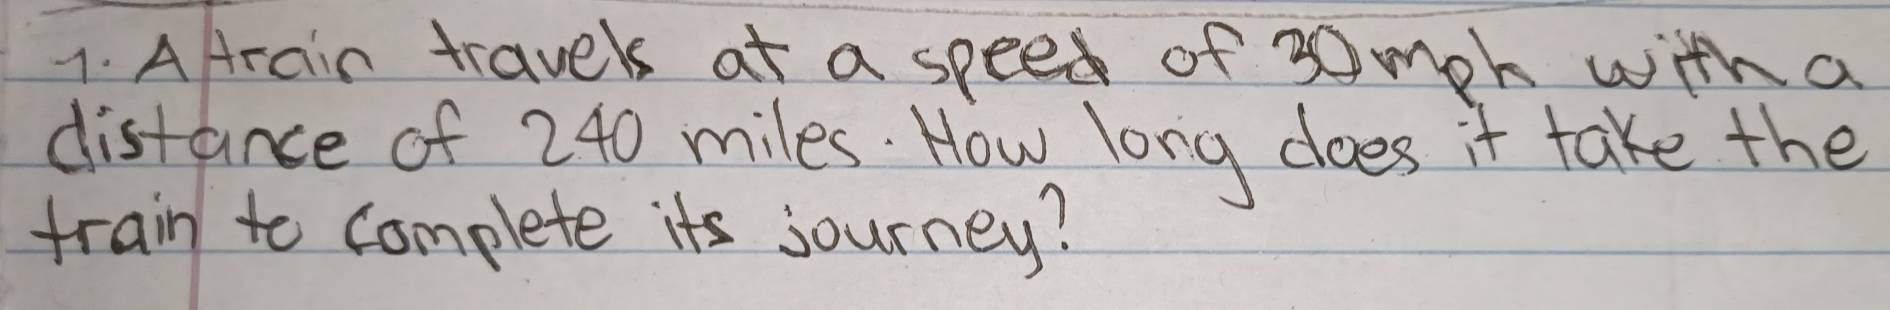 1. A train travels at a speed of 30mph with a
distance of 240 miles. How long does it take the
train to complete its journey?